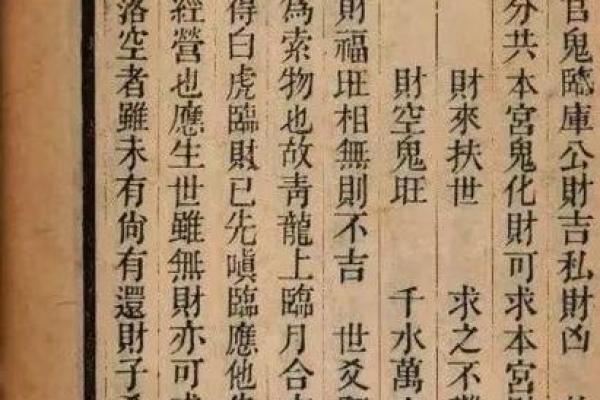 官鬼臨庫公財吉私財凶
分共本宮鬼化財可求本宮財
財來扶世　求之不
財空鬼旺　千水萬
財福旺相無則不吉　世爻
為索物也故青龍上臨月合
得白虎臨財已先嗔臨應他
經營也應生世雖無財亦可
落空者雖未有尙有還財子